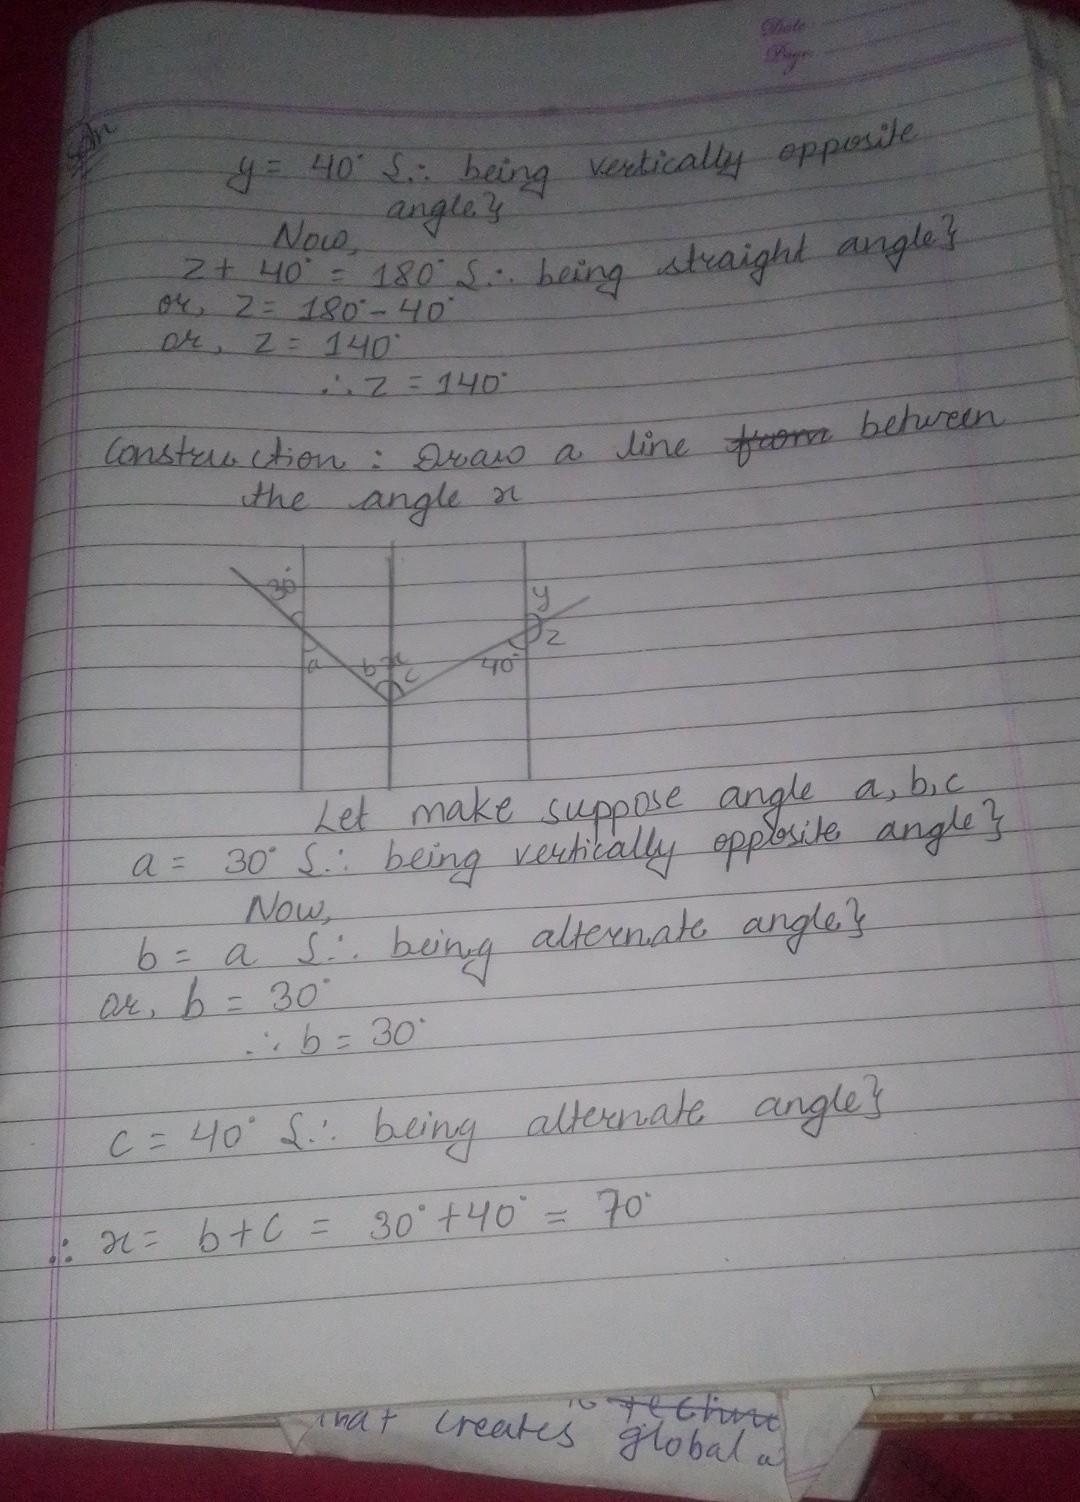 Date
Page
Soln
y = 40° {∴ being vertically opposite
angle}
Now,
z + 40° = 180° {∴ being straight angle}
or, z = 180° - 40°
or, z = 140°
∴ z = 140°
Construction : Draw a line from between
the angle x
30°
y
a
b
x
c
40°
z
Let make suppose angle a, b, c
a = 30° {∴ being vertically opposite angle}
Now,
b = a {∴ being alternate angle}
or, b = 30°
∴ b = 30°
c = 40° {∴ being alternate angle}
∴ x = b + c = 30° + 40° = 70°
that creates global